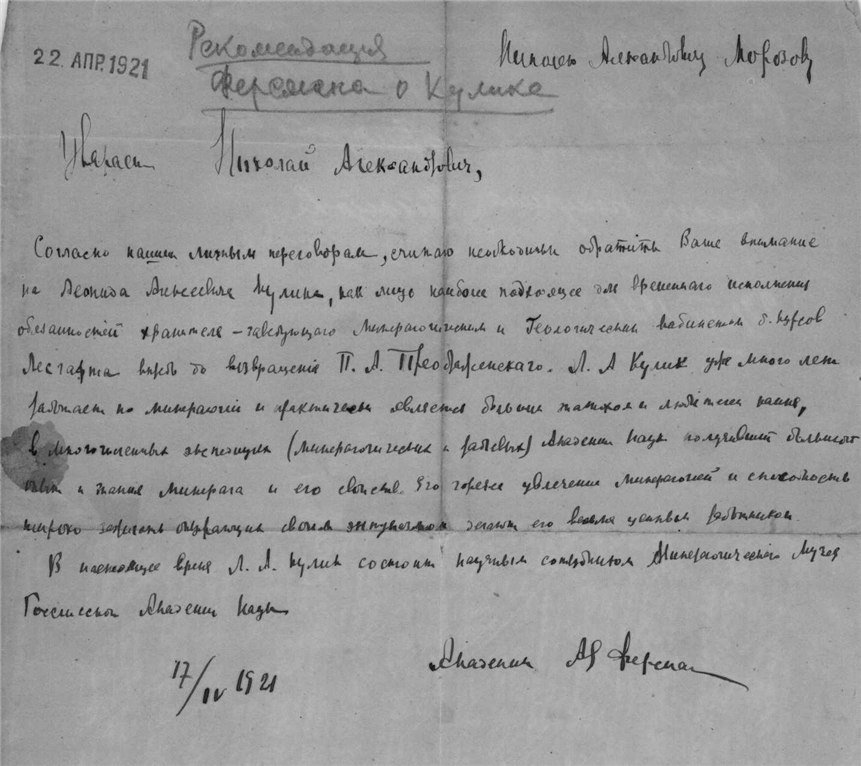 22 АПР. 1921
Рекомендация
Ферсмана о Кулике
Николаю Александровичу Морозову
Николай Александрович,
Согласно нашим личным переговорам, считаю необходимым обратить Ваше внимание
на Леонида Алексеевича Кулика, как лицо наиболее подходящее для временного исполнения
обязанностей хранителя – заведующего Минералогическим и Геологическим кабинетом б. Курсов
Лесгафта впредь до возвращения П. А. Преображенского. Л. А Кулик уже много лет
работает по минералогии и практически является большим знатоком и любителем камня,
в многочисленных экспедициях (минералогических и радиевых) Академии Наук получивший большой
опыт и знания минерала и его свойств. Его горячее увлечение минералогией и способность
широко зажигать окружающих своим энтузиазмом делают его весьма ценным работником.
В настоящее время Л. А. Кулик состоит научным сотрудником Минералогического Музея
Российской Академии Наук
17/IV 1921
Академик А Ферсман